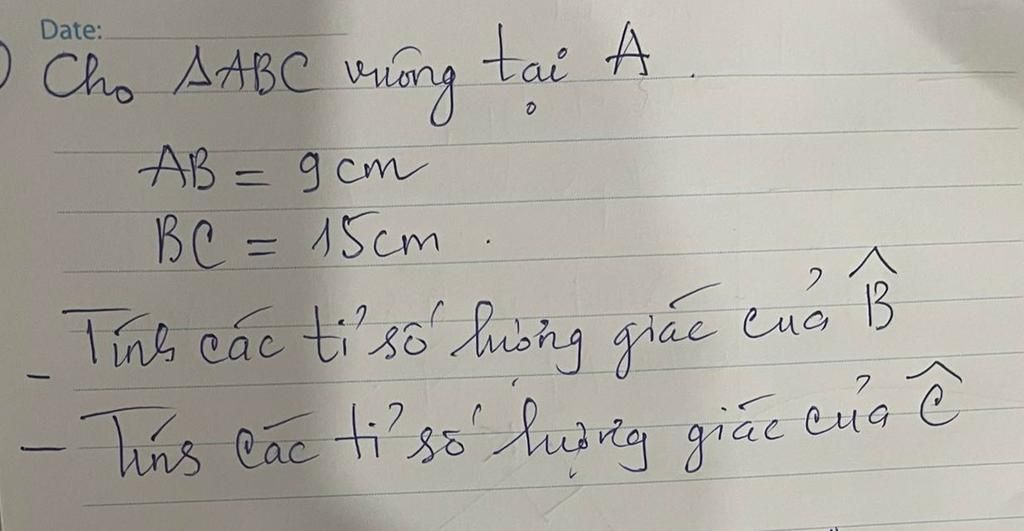 Date:
Cho ΔABC vuông tại A.
AB = 9cm
BC = 15cm.
- Tính các tỉ số lượng giác của B̂
- Tính các tỉ số lượng giác của Ĉ